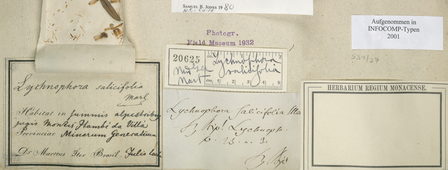 SAMUEL B. JONES 1980
Photogr.
Field Museum 1932
Aufgenommen in
INFOCOMP-Typen
2001
20625
Lychnophora
salicifolia
Mart
Lychnophora salicifolia
Mart
Habitat in summis alpestribus
jugis Montis Itambi da Villa
Provinciae Minarum Generalium
Dr Martius Iter Brasil. Julio
Lychnophora salicifolia Ma
HERBARIUM REGIUM MONACENSE.